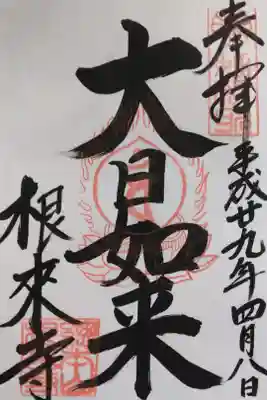 奉拝
平成廿九年四月八日
大日如来
根來寺